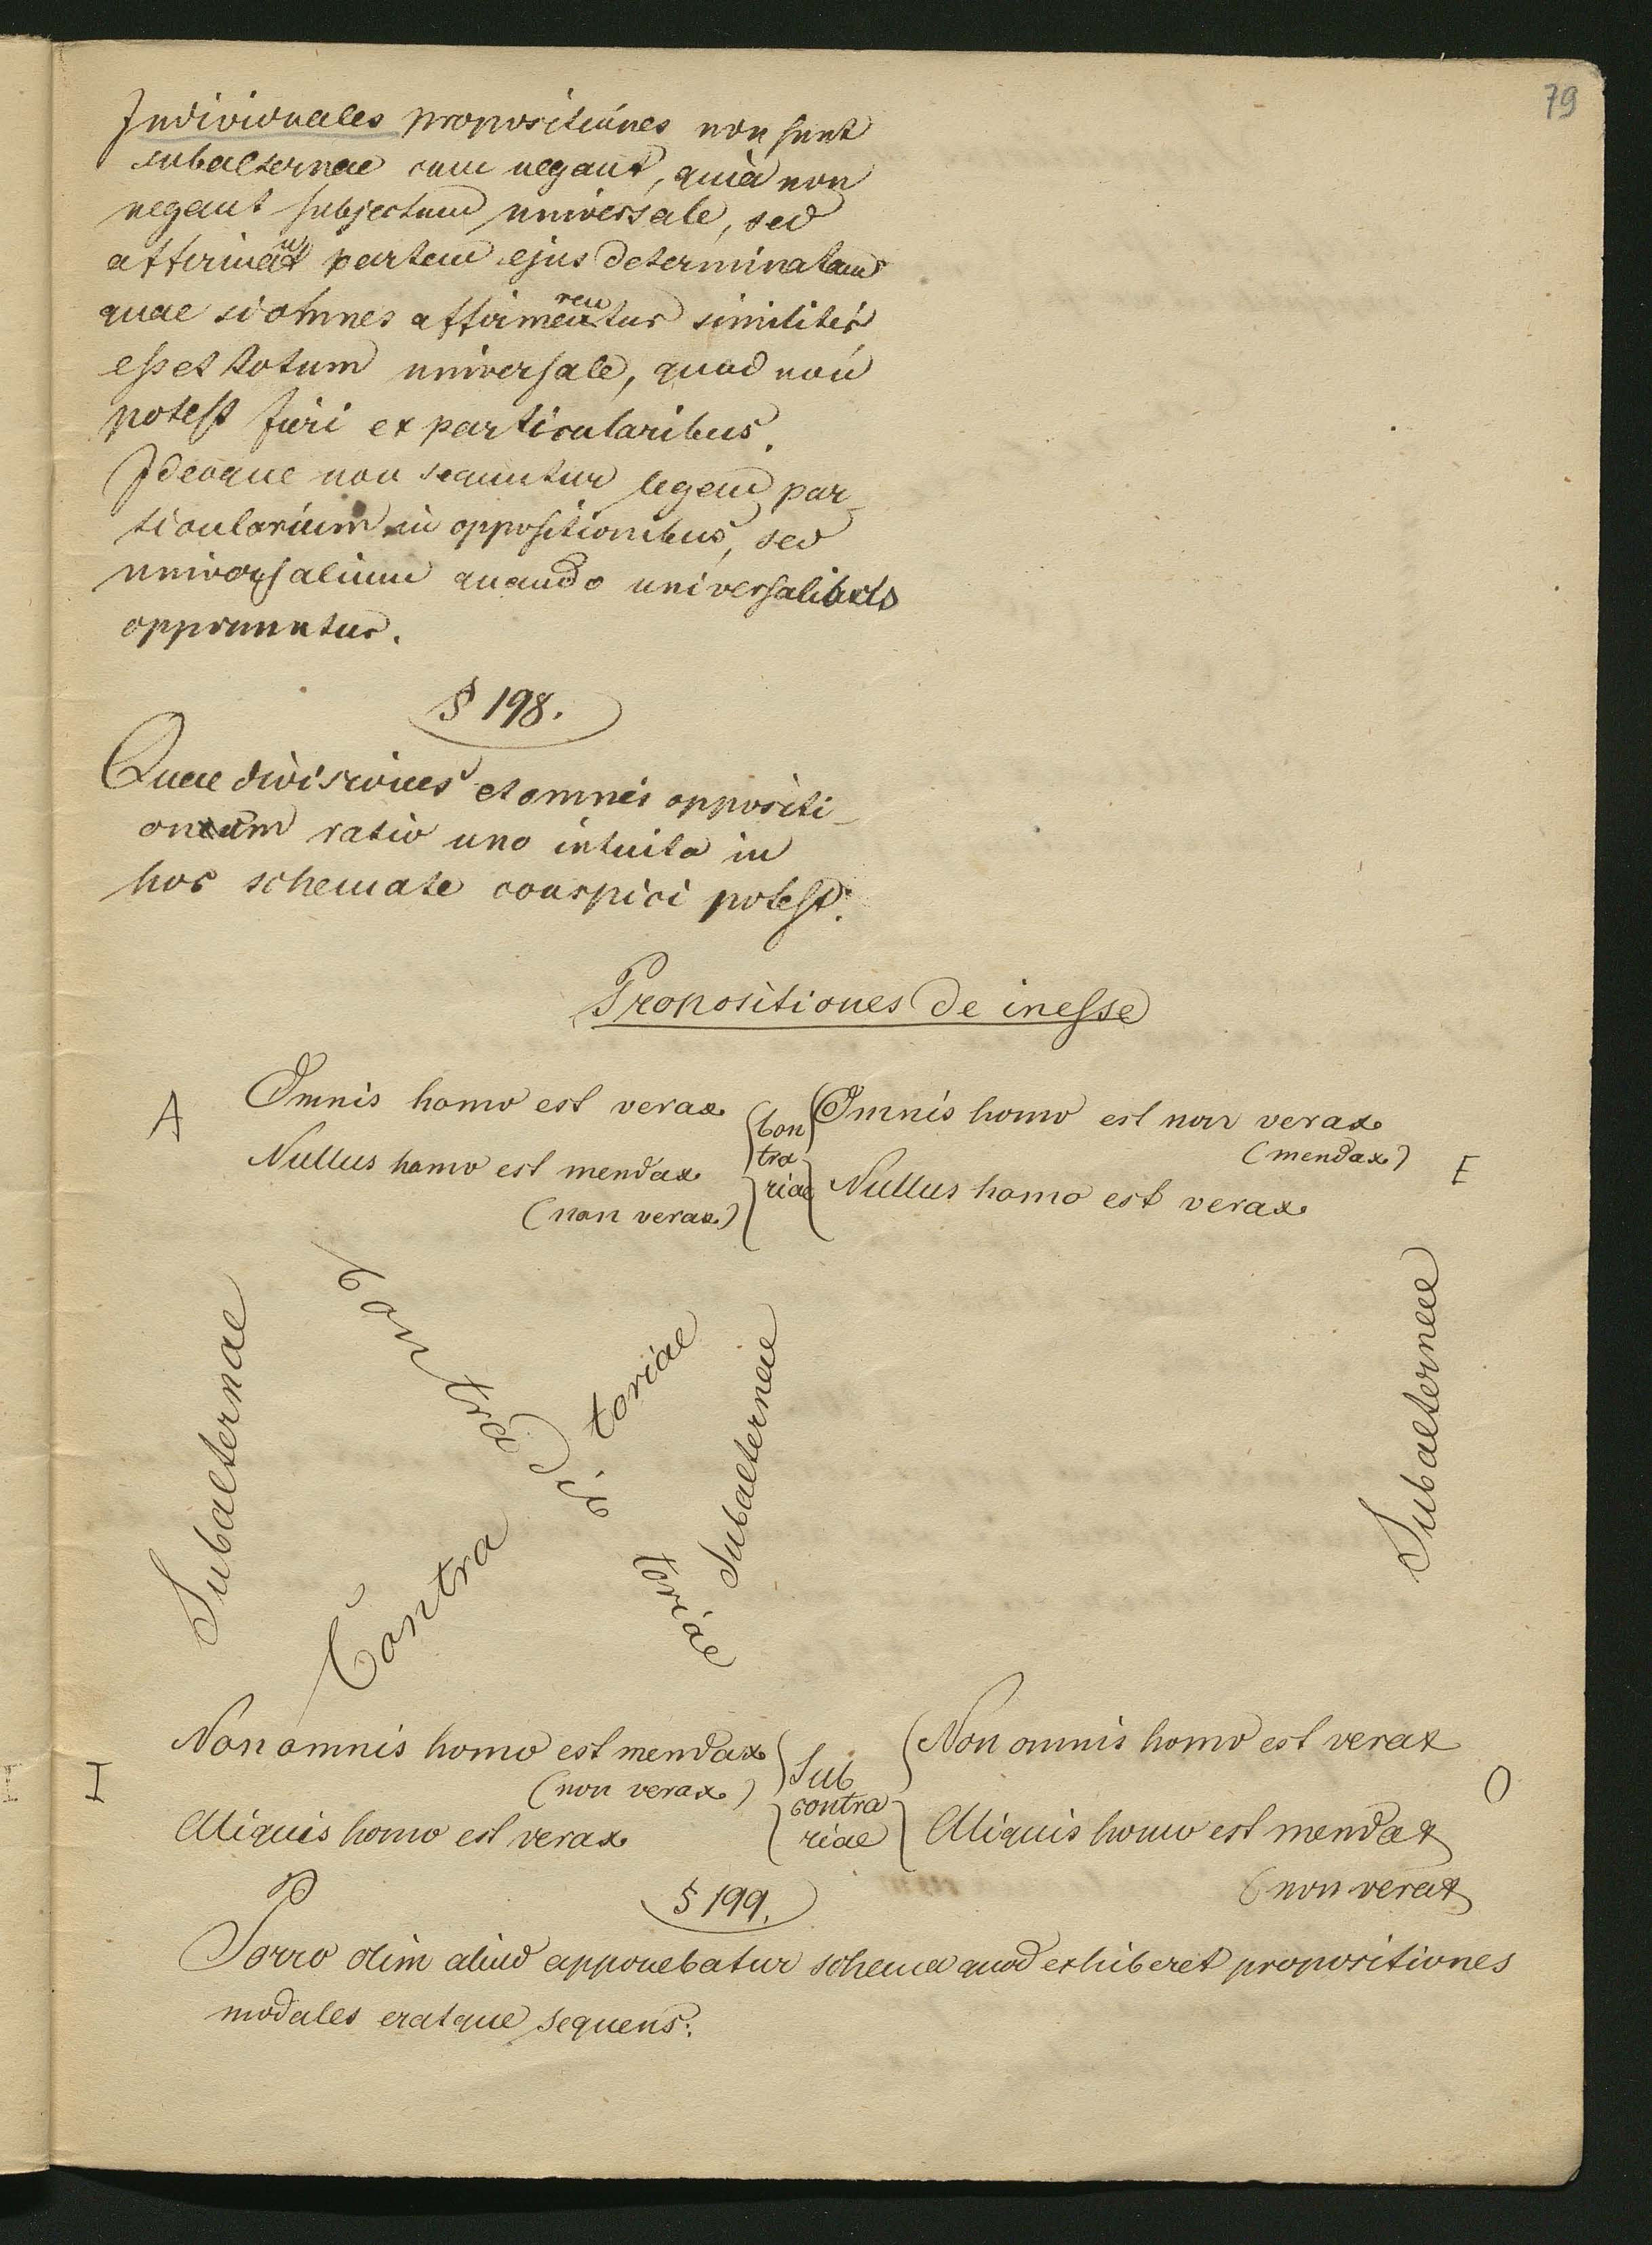 79
Individuales propositiones non sunt
subalternae cum negant, quia non
negant subjectum universale, sed
affirmant partem ejus determinatam
quae si omnes affirmarentur similiter
esset totum universale, quod non
potest fieri ex particularibus.
Ideoque non sequuntur legem par-
ticularium in oppositionibus, sed
universalium quando universalibus
opponuntur.
§ 198.
Quae divisiones et omnis oppositi-
onum ratio uno intuitu in
hoc schemate conspici potest:
Propositiones de inesse
A Omnis homo est verax Con Omnis homo est non verax
tra (mendax) E
Nullus homo est mendax riae Nullus homo est verax
(non verax)
Subalternae
Contradictoriae
Contradictoriae
Subalternae
Subalternae
I Non omnis homo est mendax Sub Non omnis homo est verax
(non verax) contra O
Aliquis homo est verax riae Aliquis homo est mendax
(non verax
§ 199.
Porro olim aliud apponebatur schema quod exhiberet propositiones
modales eratque sequens: